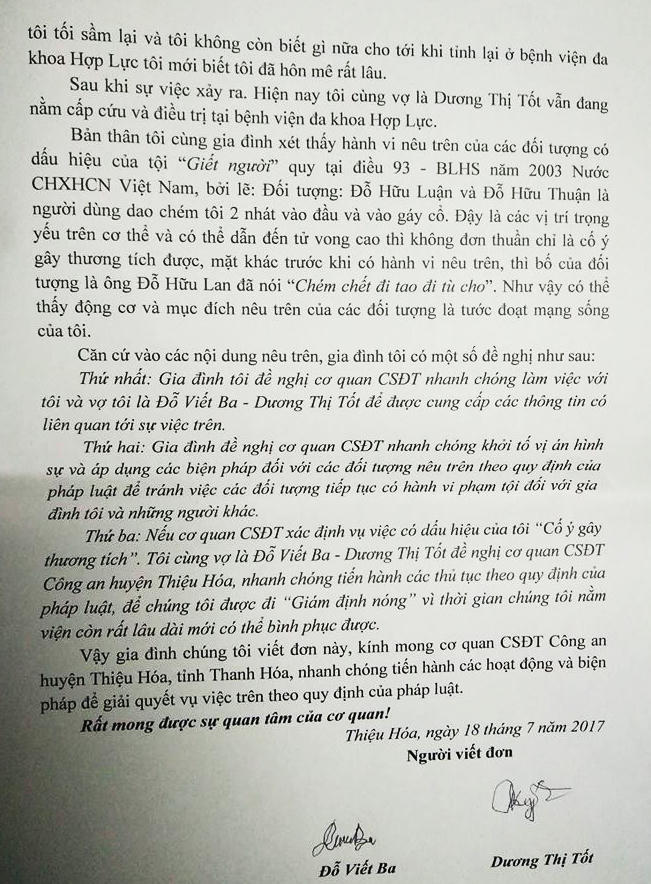 tôi tối sầm lại và tôi không còn biết gì nữa cho tới khi tỉnh lại ở bệnh viện đa
khoa Hợp Lực tôi mới biết tôi đã hôn mê rất lâu.
Sau khi sự việc xảy ra. Hiện nay tôi cùng vợ là Dương Thị Tốt vẫn đang
nằm cấp cứu và điều trị tại bệnh viện đa khoa Hợp Lực.
Bản thân tôi cùng gia đình xét thấy hành vi nêu trên của các đối tượng có
dấu hiệu của tội “Giết người” quy tại điều 93 - BLHS năm 2003 Nước
CHXHCN Việt Nam, bởi lẽ: Đối tượng: Đỗ Hữu Luận và Đỗ Hữu Thuận là
người dùng dao chém tôi 2 nhát vào đầu và vào gáy cổ. Đậy là các vị trí trọng
yếu trên cơ thể và có thể dẫn đến tử vong cao thì không đơn thuần chỉ là cố ý
gây thương tích được, mặt khác trước khi có hành vi nêu trên, thì bố của đối
tượng là ông Đỗ Hữu Lan đã nói “Chém chết đi tao đi tù cho”. Như vậy có thể
thấy động cơ và mục đích nêu trên của các đối tượng là tước đoạt mạng sống
của tôi.
Căn cứ vào các nội dung nêu trên, gia đình tôi có một số đề nghị như sau:
Thứ nhất: Gia đình tôi đề nghị cơ quan CSĐT nhanh chóng làm việc với
tôi và vợ tôi là Đỗ Viết Ba - Dương Thị Tốt để được cung cấp các thông tin có
liên quan tới sự việc trên.
Thứ hai: Gia đình đề nghị cơ quan CSĐT nhanh chóng khởi tố vị án hình
sự và áp dụng các biện pháp đối với các đối tượng nêu trên theo quy định của
pháp luật để tránh việc các đối tượng tiếp tục có hành vi phạm tội đối với gia
đình tôi và những người khác.
Thứ ba: Nếu cơ quan CSĐT xác định vụ việc có dấu hiệu của tôi “Cố ý gây
thương tích”. Tôi cùng vợ là Đỗ Viết Ba - Dương Thị Tốt đề nghị cơ quan CSĐT
Công an huyện Thiệu Hóa, nhanh chóng tiến hành các thủ tục theo quy định của
pháp luật, để chúng tôi được đi “Giám định nóng” vì thời gian chúng tôi nằm
viện còn rất lâu dài mới có thể bình phục được.
Vậy gia đình chúng tôi viết đơn này, kính mong cơ quan CSĐT Công an
huyện Thiệu Hóa, tỉnh Thanh Hóa, nhanh chóng tiến hành các hoạt động và biện
pháp để giải quyết vụ việc trên theo quy định của pháp luật.
Rất mong được sự quan tâm của cơ quan!
Thiệu Hóa, ngày 18 tháng 7 năm 2017
Người viết đơn
Đỗ Viết Ba
Dương Thị Tốt